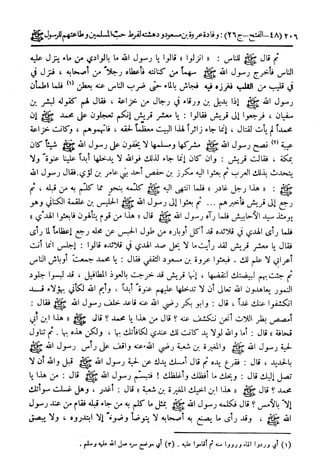 ٢٠٦ (٤٨-الفتح-ج٢٦): وفادة عروة بن مسعود ودهشته لفرط حب المسلمين وطاعتهم للرسول ﷺ
ثم قال ﷺ للناس: « انزلوا » قالوا يا رسول الله ما بالوادي من ماء ينزل عليه
الناس فأخرج رسول الله ﷺ سهماً من كنانته فأعطاه رجلاً من أصحابه ، فنزل في
في قليب من القلب فغرزه فيه فجاش بالماء حتى ضرب الناس عنه بعطن (١) فلما اطمأن
رسول الله ﷺ إذا بديل بن ورقاء في رجال من خزاعة ، فقال لهم كقوله لبشر بن
سفيان ، فرجعوا إلى قريش فقالوا : يا معشر قريش إنكم تعجلون على محمد إن
محمداً لم يأت لقتال ، إنما جاء زائراً لهذا البيت معظماً لحقه ، فاتهموهم ، وكانت خزاعة
عيبة (٢) نصح رسول الله ﷺ مشركها ومسلمها لا يخفون على رسول الله ﷺ شيئاً كان
بمكة ، فقالت قريش : وإن كان إنما جاء لذلك فوالله لا يدخلها أبداً علينا عنوة ولا
يتحدث بذلك العرب ثم بعثوا إليه مكرز بن حفص أحد بني عامر بن لؤي. فقال رسول الله
ﷺ : « هذا رجل غادر » فلما انتهى إليه ﷺ كلمه بنحو مما كلم به من قبله ، ثم
رجع إلى قريش فأخبرهم ... ثم بعثوا إلى رسول الله ﷺ الحليس بن علقمة الكناني وهو
يومئذ سيد الأحابيش فلما رآه رسول الله ﷺ قال « هذا من قوم يتألهون فابعثوا الهدي »
فلما رأى الهدي في قلائده قد أكل أوباره من طول الحبس عن محله رجع إعظاماً لما رأى
فقال يا معشر قريش لقد رأيت ما لا يحل صد الهدي في قلائده قالوا : اجلس إنما أنت
أعرابي لا علم لك . فبعثوا عروة بن مسعود الثقفي فقال : يا محمد جمعت أوباش الناس
ثم جئت بهم لبيضتك لتفضها ، إنها قريش قد خرجت بالعوذ المطافيل ، قد لبسوا جلود
النمور يعاهدون الله تعالى أن لا تدخلها عليهم عنوة أبداً ، وأيم الله لكأني بهؤلاء قد
انكشفوا عنك غداً ، قال : وأبو بكر رضي الله عنه قاعد خلف رسول الله ﷺ فقال :
أمصص بظر اللات أنحن ننكشف عنه ؟ قال من هذا يا محمد ؟ قال ﷺ « هذا ابن أبي
قحافة » قال : أما والله لولا يد كانت لك عندي لكافأتك بها ، ولكن هذه بها . ثم تناول
لحية رسول الله ﷺ والمغيرة بن شعبة رضي الله عنه واقف على رأس رسول الله ﷺ
بالحديد ، قال : فقرع يده ثم قال أمسك يدك عن لحية رسول الله ﷺ قبل والله أن لا
تصل إليك قال : ويحك ما أفظك وأغلظك ! فتبسم رسول الله ﷺ قال : من هذا يا
محمد ؟ قال ﷺ « هذا ابن أخيك المغيرة بن شعبة » قال : أغدر ، وهل غسلت سوأتك
إلا بالأمس ؟ قال فكلمه رسول الله ﷺ بمثل ما كلم به من جاء قبله فقام من عند رسول
الله ﷺ ، وقد رأى ما يصنع به أصحابه لا يتوضأ وضوءاً إلا ابتدروه ، ولا يبصق
(١) أي وردوا الماء ورووا منه ثم أقاموا عليه . (٢) أي موضع سره صلى الله عليه وسلم .